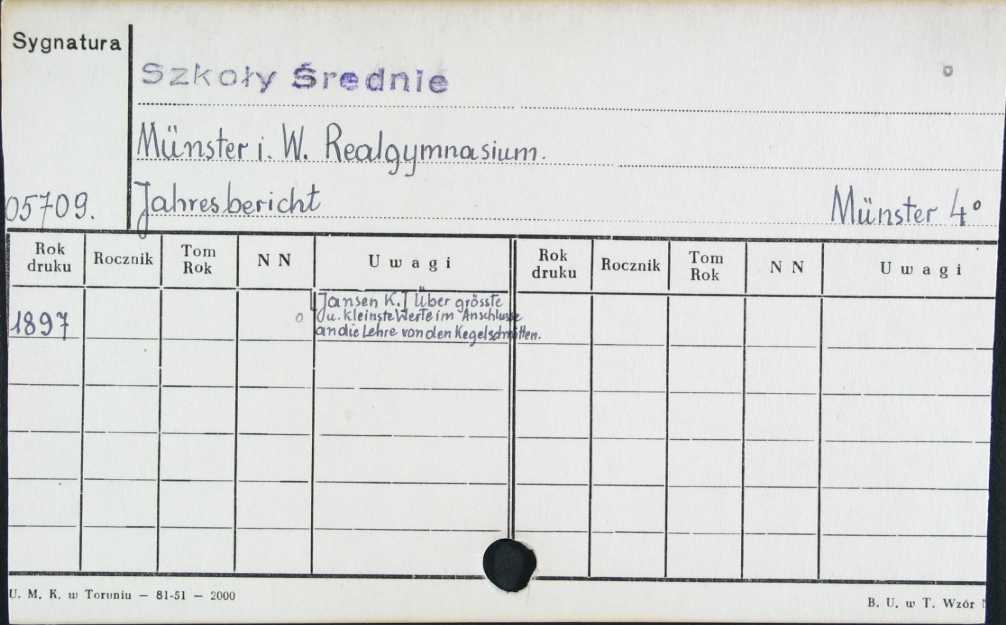 Sygnatura
Szkoły Średnie
Münster i. W. Realgymnasium.
05709.
Jahresbericht
Münster 4°
Rok druku Rocznik Tom Rok N N Uwagi Rok druku Rocznik Tom Rok N N Uwagi
1897
[Jansen K.] Über grösste
u. kleinste Werte im Anschlusse
an die Lehre von den Kegelschnitten.
U. M. K. w Toruniu — 81-51 — 2000
B. U. w T. Wzór